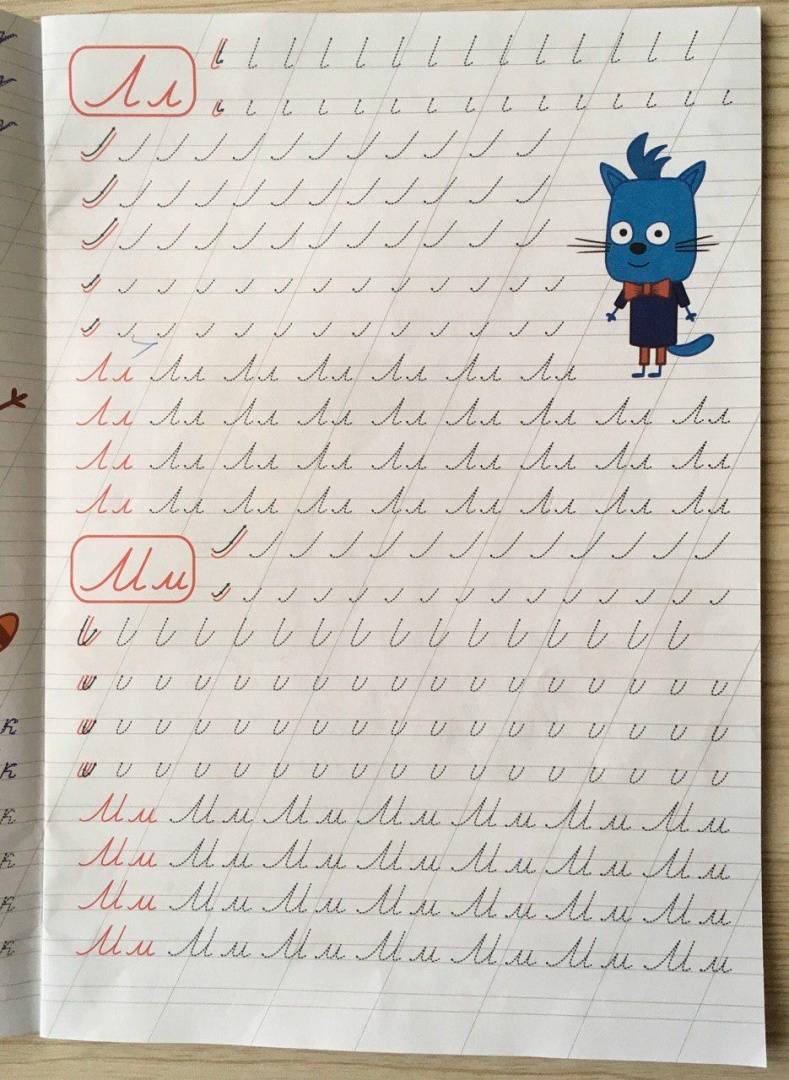 к
к
к
к
к
к
Лл
Лл Лл Лл Лл Лл Лл Лл
Лл Лл Лл Лл Лл Лл Лл Лл Лл
Лл Лл Лл Лл Лл Лл Лл Лл Лл
Лл Лл Лл Лл Лл Лл Лл Лл Лл
Мм
Мм Мм Мм Мм Мм Мм Мм
Мм Мм Мм Мм Мм Мм Мм
Мм Мм Мм Мм Мм Мм Мм
Мм Мм Мм Мм Мм Мм Мм